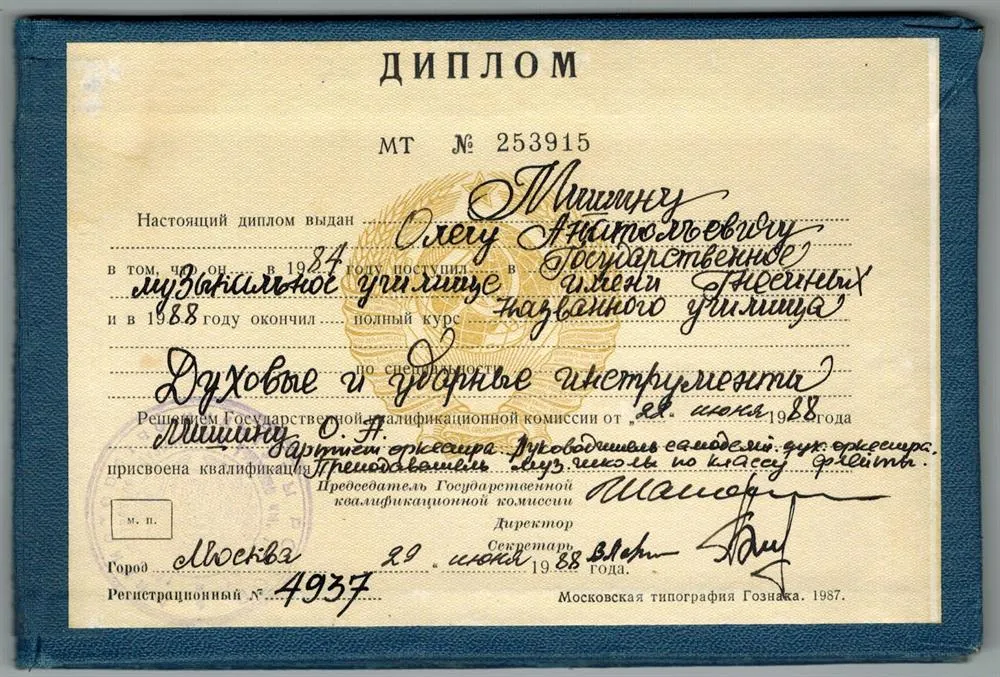 ДИПЛОМ
МТ № 253915
Настоящий диплом выдан Мишину
Олегу Анатольевичу
в том, что он в 1984 году поступил в Государственное
музыкальное училище имени Гнесиных
и в 1988 году окончил полный курс названного училища
по специальности
Духовые и ударные инструменты
Решением Государственной квалификационной комиссии от „29" июня 1988 года
Мишину О. А.
присвоена квалификация артист оркестра. Руководитель самодеят. дух. оркестра.
Преподаватель муз. школы по классу флейты.
Председатель Государственной
квалификационной комиссии
Директор
Секретарь
м. п.
Город Москва 29 " июня 1988 года.
Регистрационный № 4937
Московская типография Гознака. 1987.